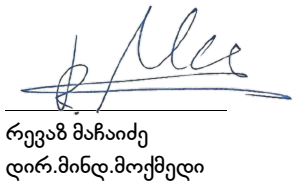 რევაზ მაჩაიძე
დირ.მინდ.მოქმედი